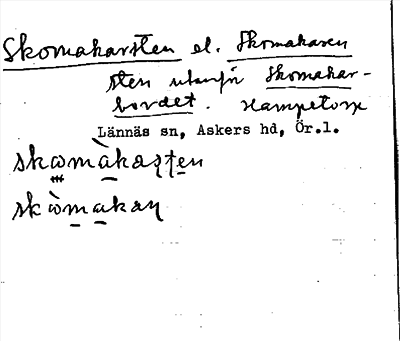 Skomakarsten el. Skomakaren
sten utanför Skomakar-
bordet. Hampetorp
Lännäs sn, Askers hd, Ör.l.
skomàkaṣṭen
skòmakaṇ